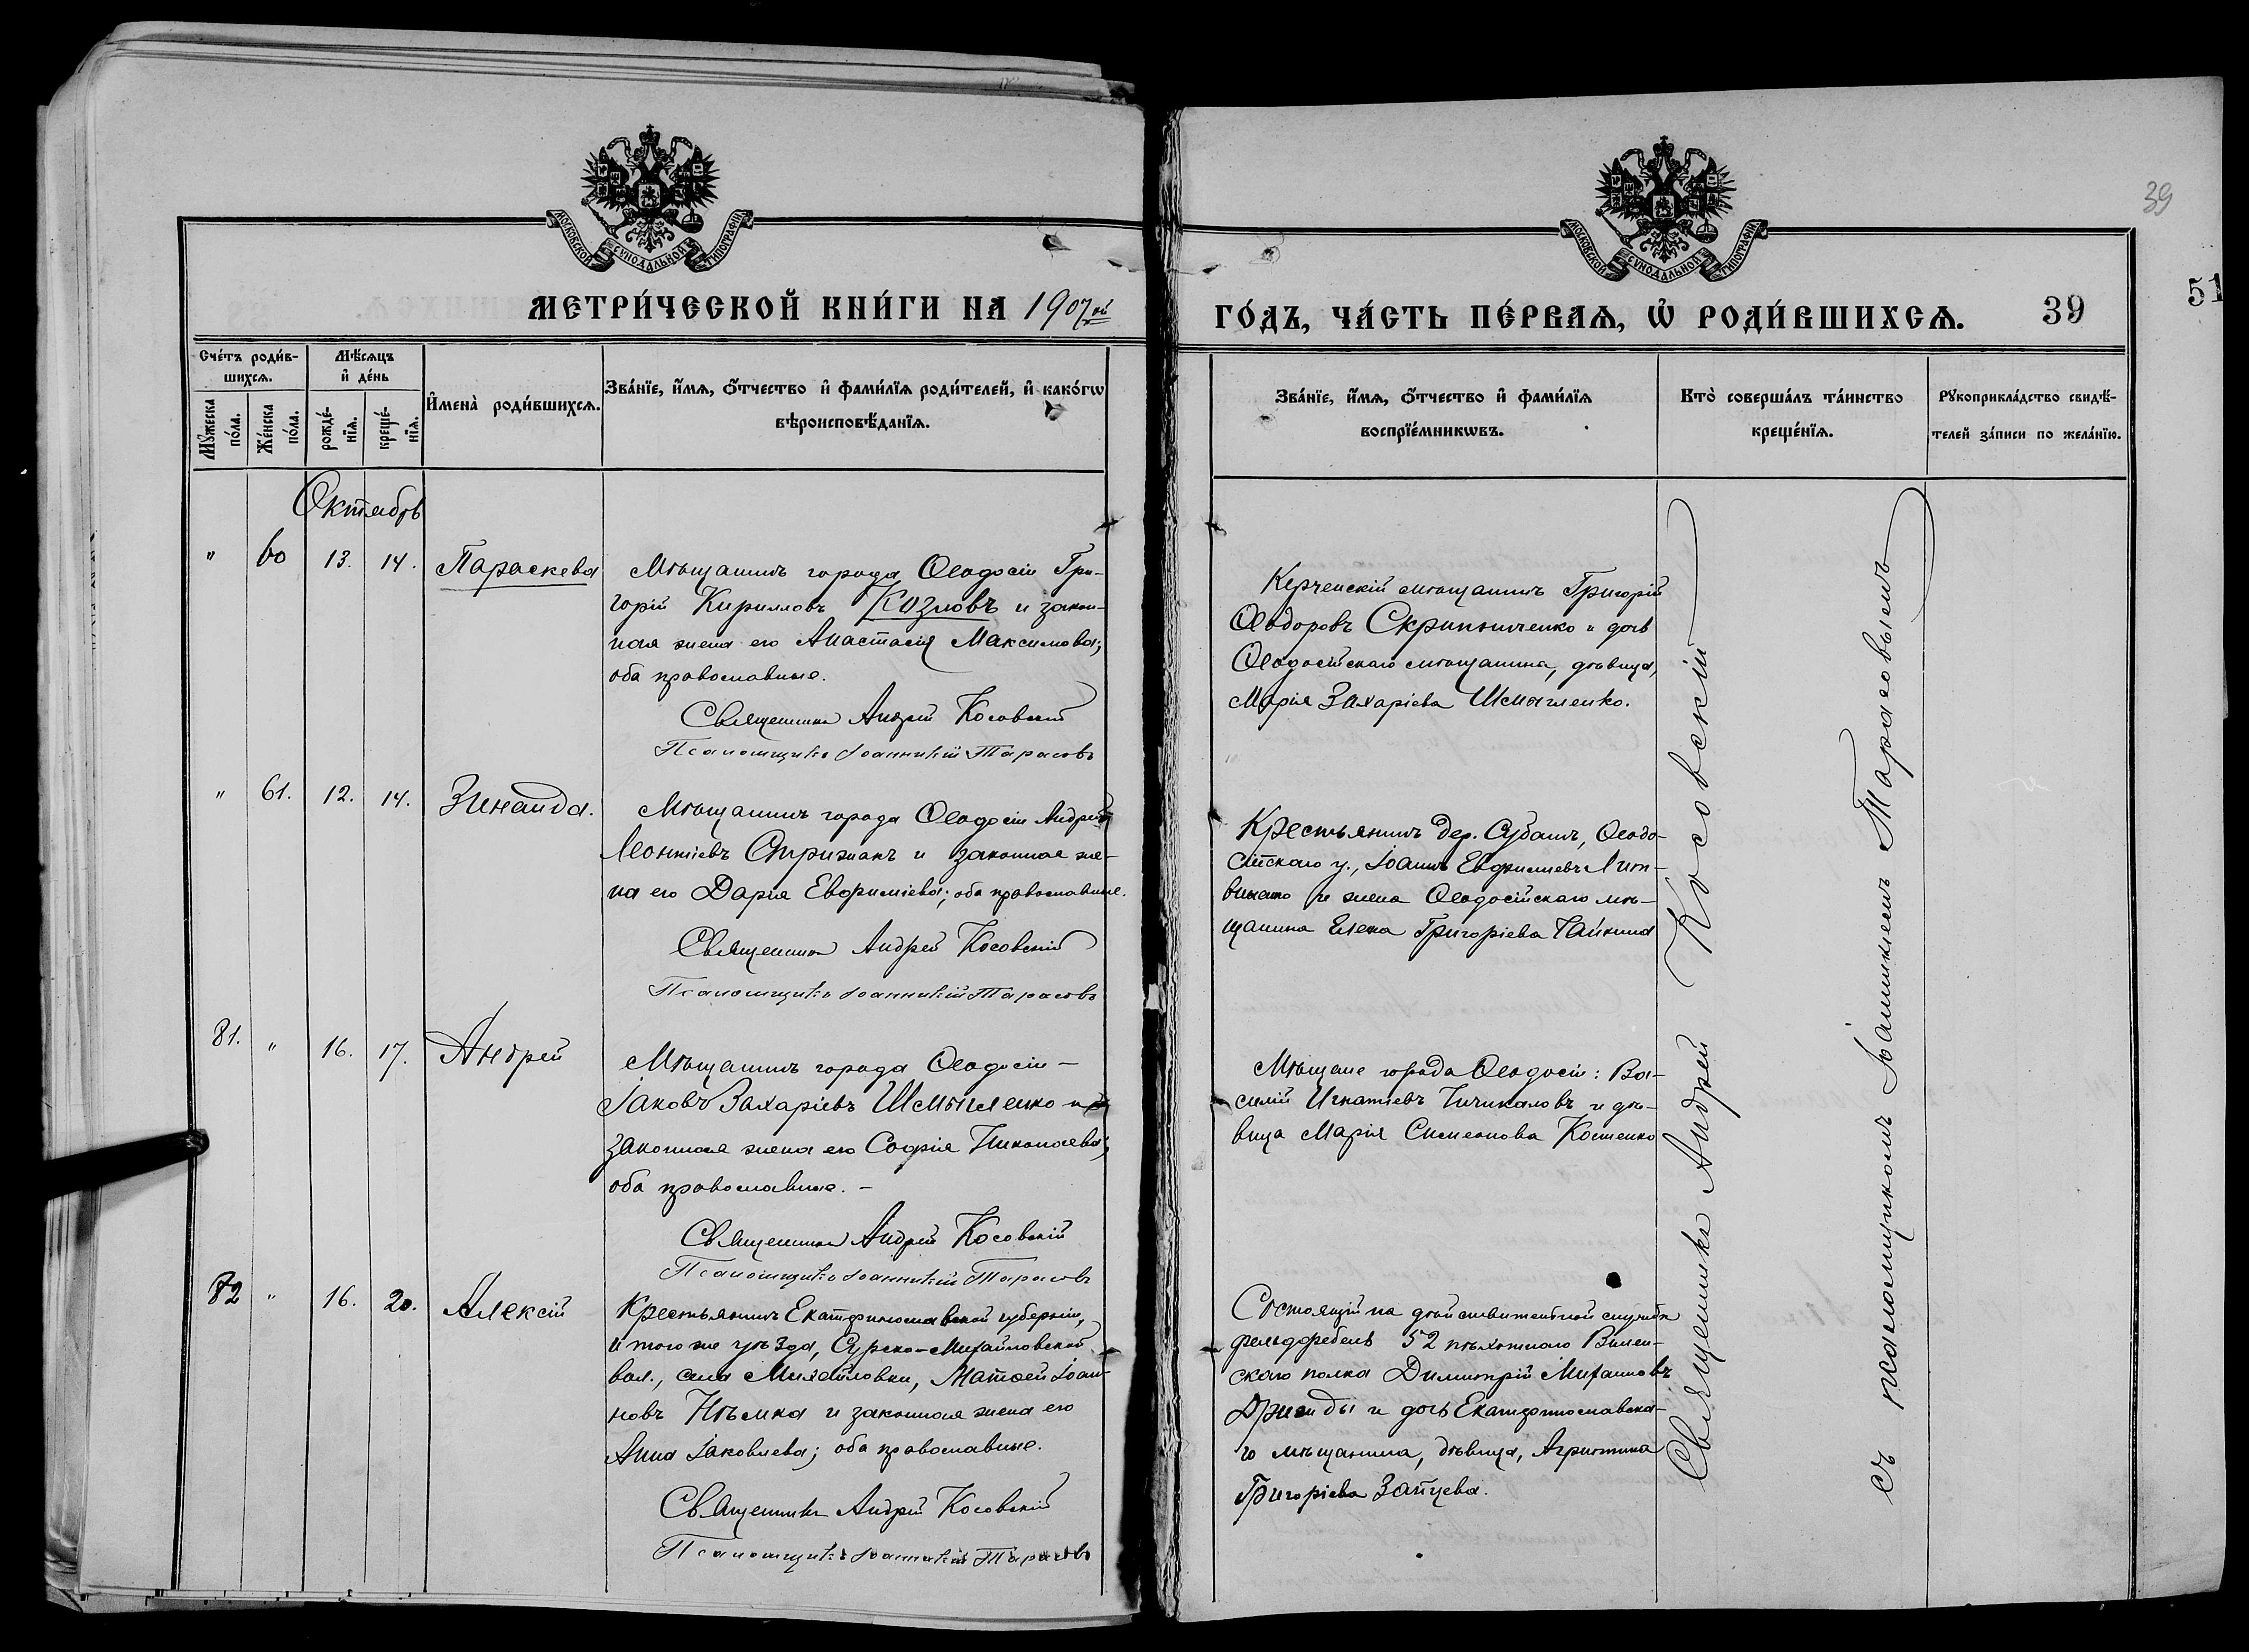 39
МОСКОВСКОЙ СУНОДАЛЬНОЙ ТИПОГРАФІИ
МОСКОВСКОЙ СУНОДАЛЬНОЙ ТИПОГРАФІИ
МЕТРИ́ЧЕСКОЙ КНИ́ГИ НА 1907ой
ГО́ДЪ, ЧА́СТЬ ПЕ́РВАѦ, Ѡ҆ РОДИ́ВШИХСѦ.
39
51
Сче́тъ роди́в-
шихсѧ.
Мꙋ́жеска
по́ла.
Же́нска
по́ла.
Мѣ́сѧцъ
и҆ де́нь
рожде́-
нїѧ.
креще́-
нїѧ.
И҆мена̀ роди́вшихсѧ.
Зва́нїе, и҆́мѧ, ѻ҆́тчество и҆ фами́лїѧ роди́телей, и҆ како́гѡ
вѣроисповѣ́данїѧ.
Зва́нїе, и҆́мѧ, ѻ҆́тчество и҆ фами́лїѧ
воспрїе́мникѡвъ.
Кто̀ соверша́лъ та́инство
креще́нїѧ.
Рꙋкоприкла́дство свидѣ́-
телей за́писи по жела́нїю.
Октябрь
" 60 13. 14. Параскева
Мѣщанинъ города Ѳеодосіи Гри-
горій Кирилловъ Козловъ и закон-
ная жена его Анастасія Максимова;
оба православные.
Священникъ Андрей Косовскій
Псаломщикъ Іоанникій Тарасовъ
Керченскій мѣщанинъ Григорій
Ѳеодоровъ Скрипниченко и дочь
Ѳеодосійскаго мѣщанина, дѣвица,
Марія Захаріева Шмыгленко.
" 61. 12. 14. Зинаида.
Мѣщанинъ города Ѳеодосіи Андрей
Леонтіевъ Стрижакъ и законная же-
на его Дарія Евфиміева; оба православные.
Священникъ Андрей Косовскій
Псаломщикъ Іоанникій Тарасовъ
Крестьянинъ дер. Субашъ, Ѳеодо-
сійскаго у., Іоаннъ Евфиміевъ Лит-
виненко и жена Ѳеодосійскаго мѣ-
щанина Елена Григоріева
81. " 16. 17. Андрей
Мѣщанинъ города Ѳеодосіи –
Іаковъ Захаріевъ Шмыгленко и
законная жена его Софія Николаева;
оба православные. –
Священникъ Андрей Косовскій
Псаломщикъ Іоанникій Тарасовъ
Мѣщане города Ѳеодосіи: Ва-
силій Игнатіевъ Чичикаловъ и дѣ-
вица Марія Симеонова Костенко
82 " 16. 20. Алексій
Крестьянинъ Екатеринославской губерніи,
и того же уѣзда, Сурско-Михайловской
вол., села Михайловки, Матѳей Іоан-
новъ Нѣмка и законная жена его
Анна Іаковлева; оба православные.
Священникъ Андрей Косовскій
Псаломщикъ Іоанникій Тарасовъ
Состоящій на дѣйствительной службѣ
фельдфебель 52 пѣхотнаго Вилен-
скаго полка Димитрій Михаиловъ
и дочь Екатеринославска-
го мѣщанина, дѣвица, Агриппина
Григоріева Зайцева.
Священникъ Андрей Косовскій
съ псаломщикомъ Іоанникіемъ Тарасовымъ